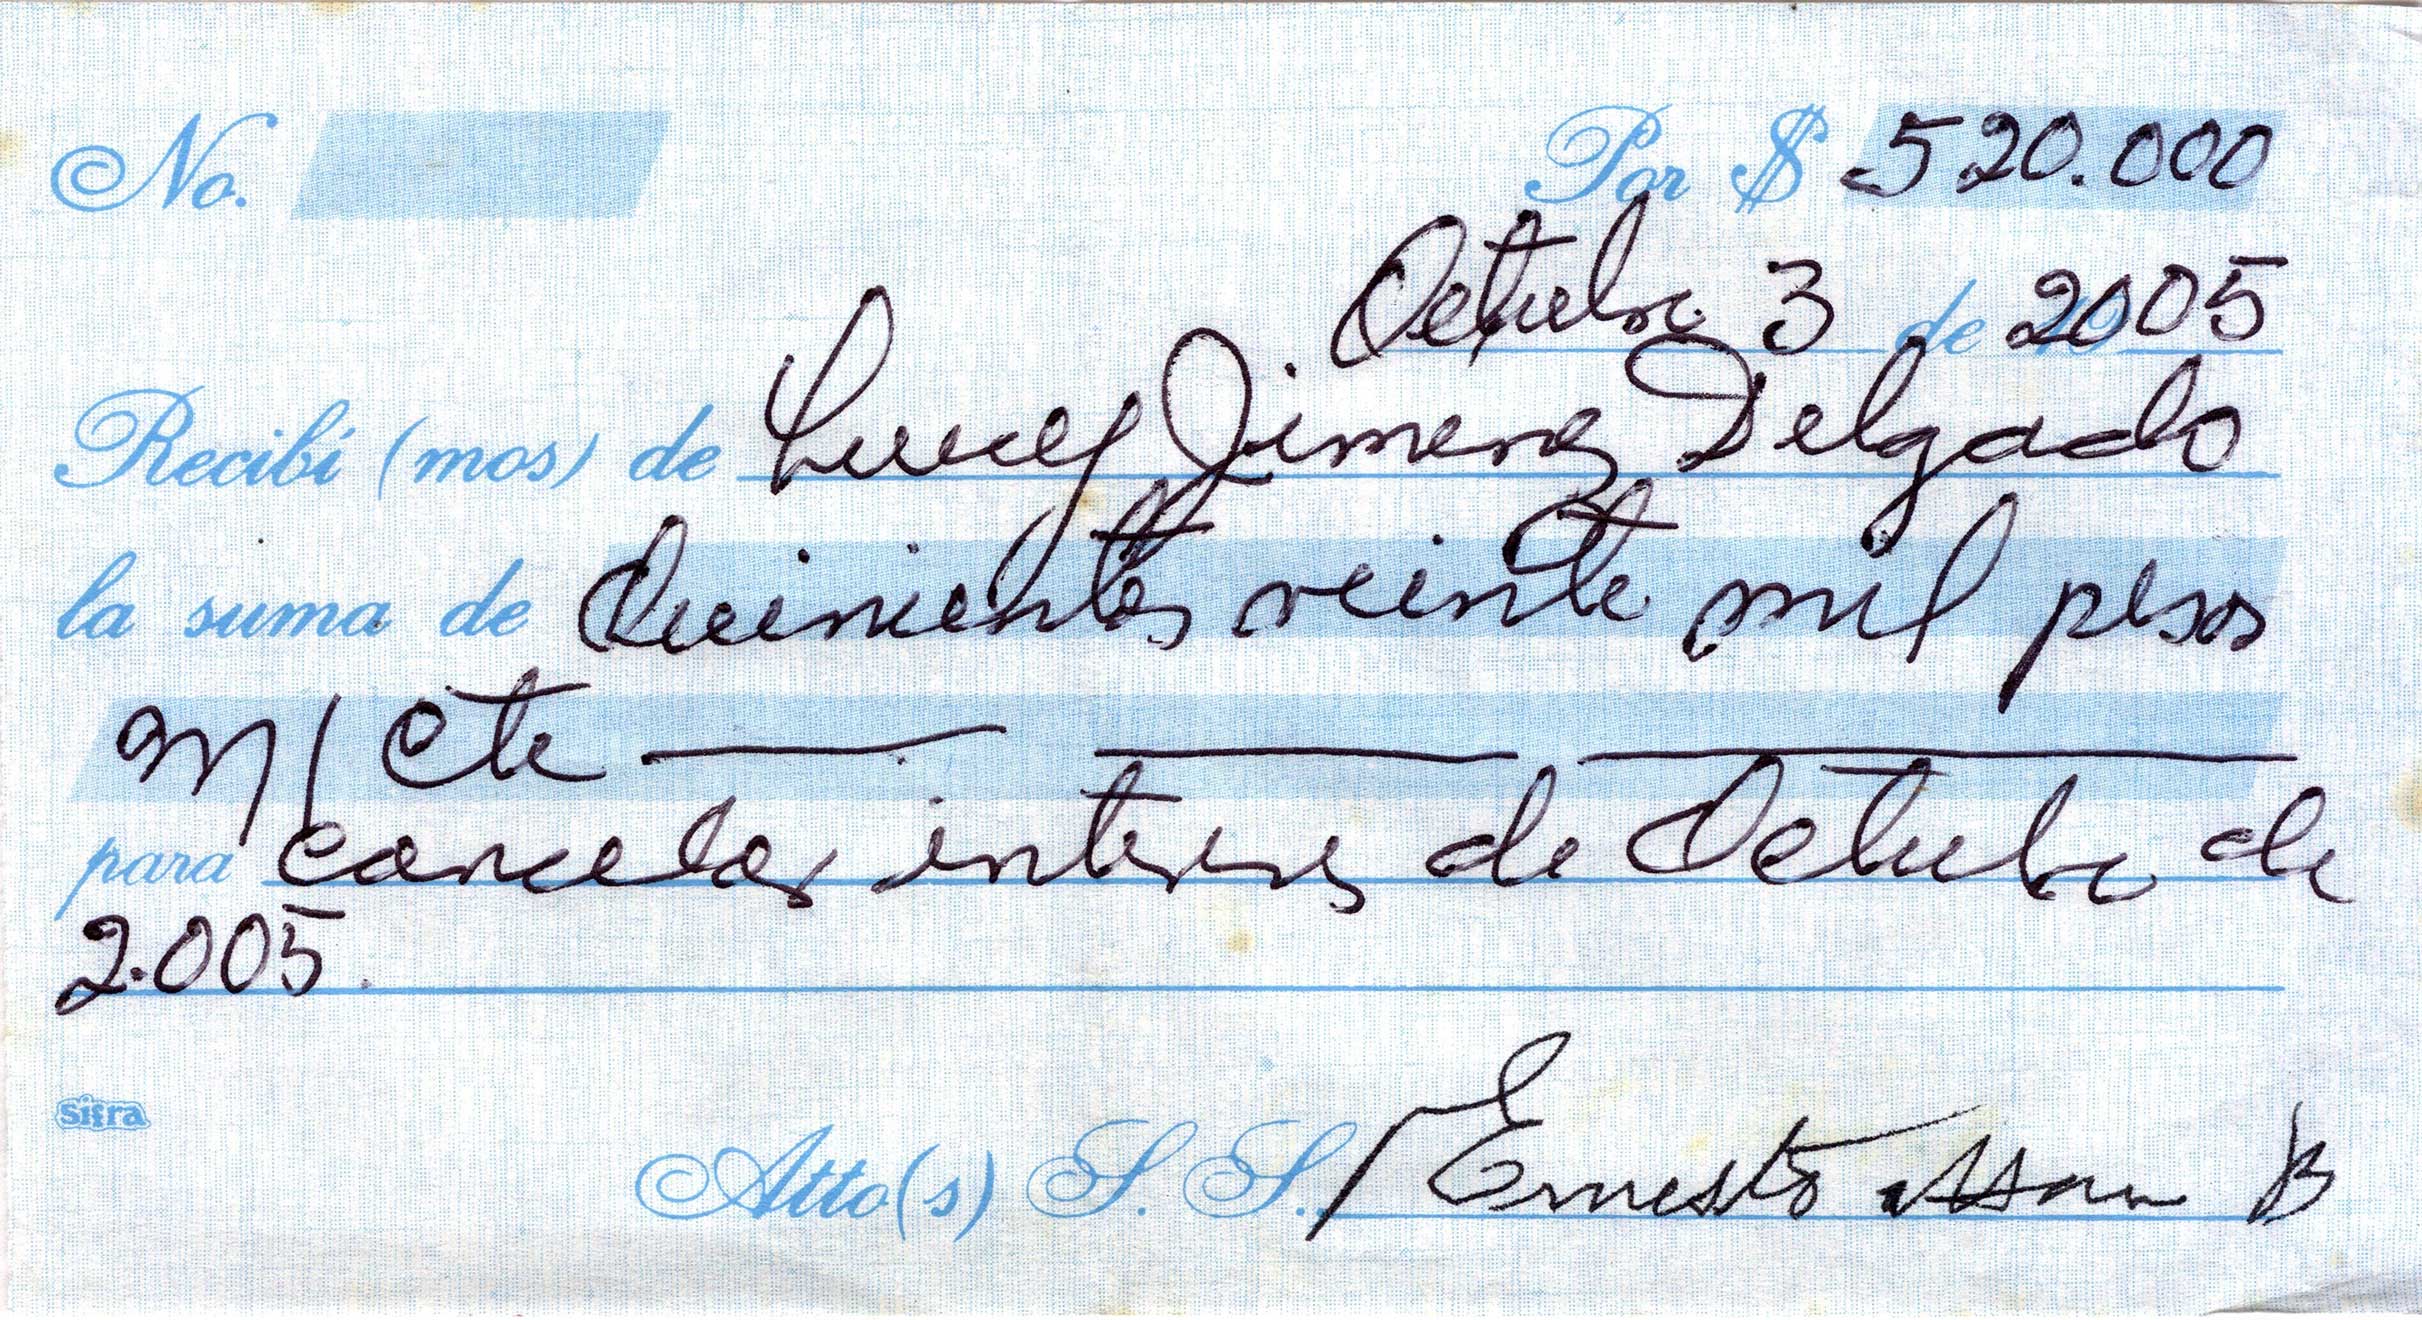 No. Por $ 520.000
Octubre 3 de 19 2005
Recibí (mos) de Lucey Jimenez Delgado
la suma de Quinientos veinte mil pesos
M/Cte
para cancelar intereses de Octubre de
2.005.
sifra
Atto(s) S. S. Ernesto B